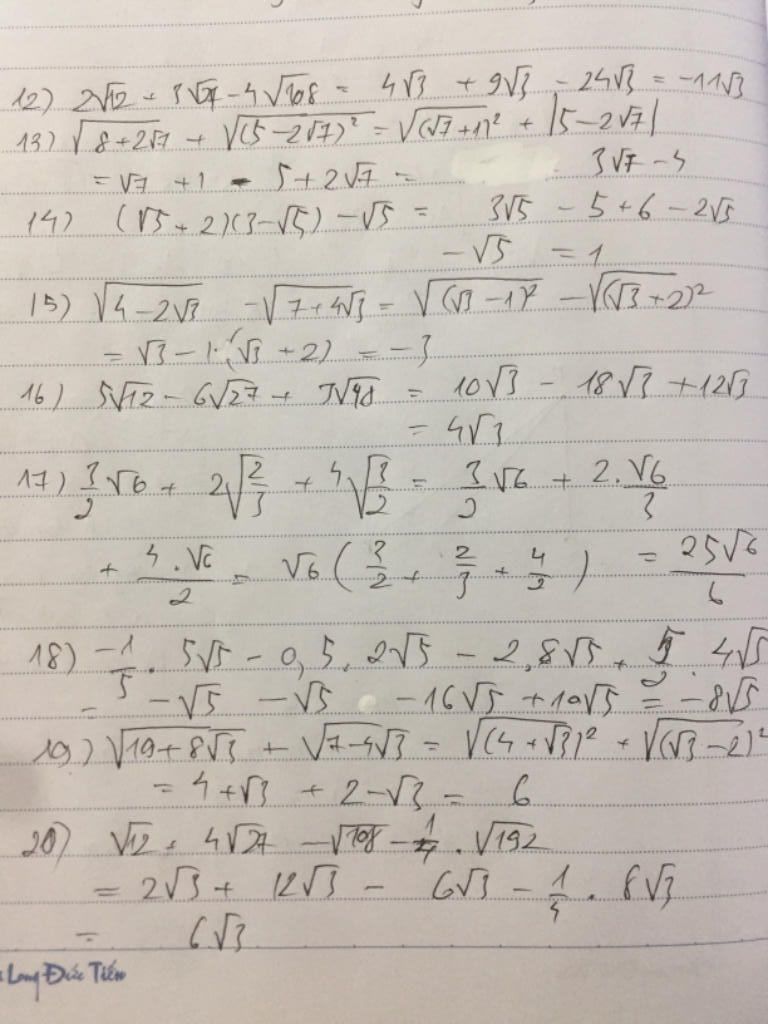 12) 2√12 + 3√27 - 4√108 = 4√3 + 9√3 - 24√3 = -11√3
13) √(8+2√7) + √((5-2√7)²) = √((√7+1)²) + |5-2√7|
= √7 + 1 - 5 + 2√7 = 3√7 - 4
14) (√5 + 2)(3-√5) - √5 = 3√5 - 5 + 6 - 2√5
- √5 = 1
15) √(4-2√3) - √(7+4√3) = √((√3-1)²) - √((√3+2)²)
= √3 - 1 - (√3 + 2) = -3
16) 5√12 - 6√27 + 3√48 = 10√3 - 18√3 + 12√3
= 4√3
17) 3/2 √6 + 2√(2/3) + 4√(3/2) = 3/2 √6 + 2. √6/3
+ 4.√6/2 = √6 (3/2 + 2/3 + 4/2) = 25√6/6
18) -1/5 . 5√5 - 0,5. 2√5 - 2.8√5 + 5/2. 4√5
= -√5 - √5 - 16√5 + 10√5 = -8√5
19) √(19+8√3) + √(7-4√3) = √((4+√3)²) + √((√3-2)²)
= 4+√3 + 2-√3 = 6
20) √12 + 4√27 - √108 - 1/4 . √192
= 2√3 + 12√3 - 6√3 - 1/4 . 8√3
= 6√3
Long Đức Tiến